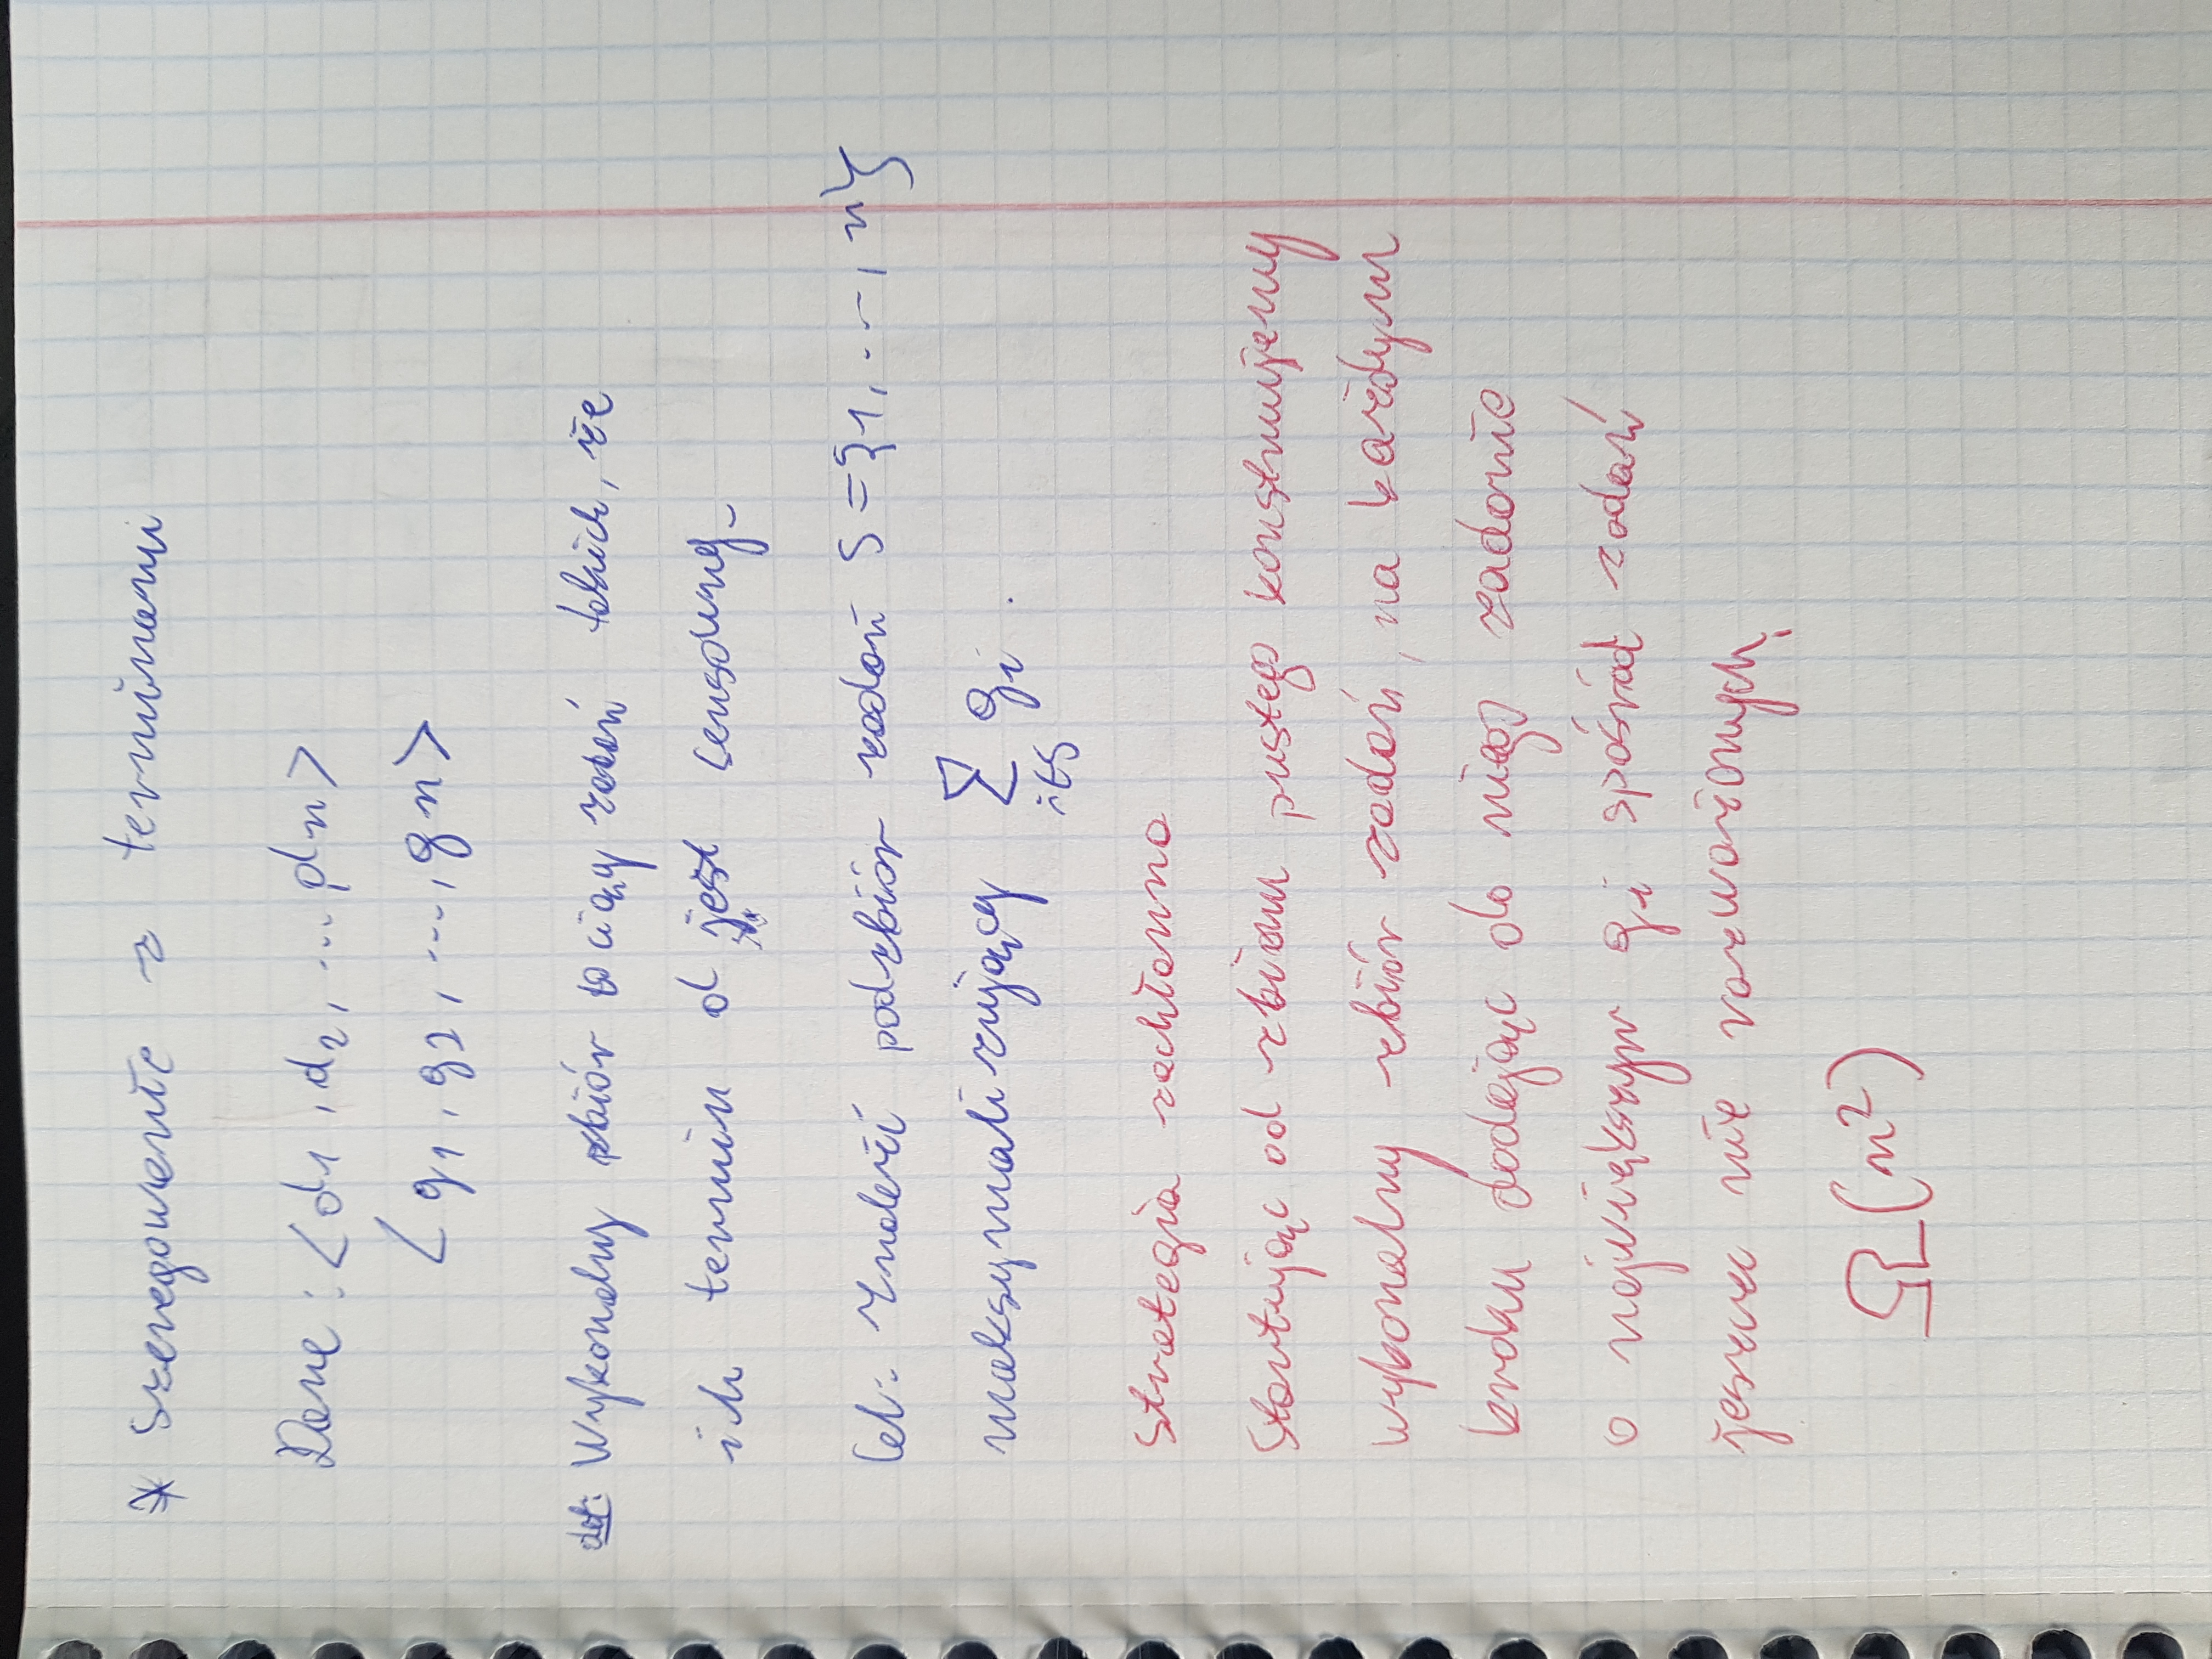 * Szeregowanie z terminami
Dane: <d1, d2, ..., dn>
<g1, g2, ..., gn>
def: Wykonalny zbiór to ciąg zadań takich, że
ich termin d jest sensowny.
Cel: Znaleźć podzbiór zadań S = {1, ..., n}
maksymalizujący ∑ gi.
i∈S
Strategia zachłanna
Startując od zbioru pustego konstruujemy
wykonalny zbiór zadań, na każdym
kroku dodając do niego zadanie
o największym gi spośród zadań
jeszcze nie rozważonych.
Ω(n²)